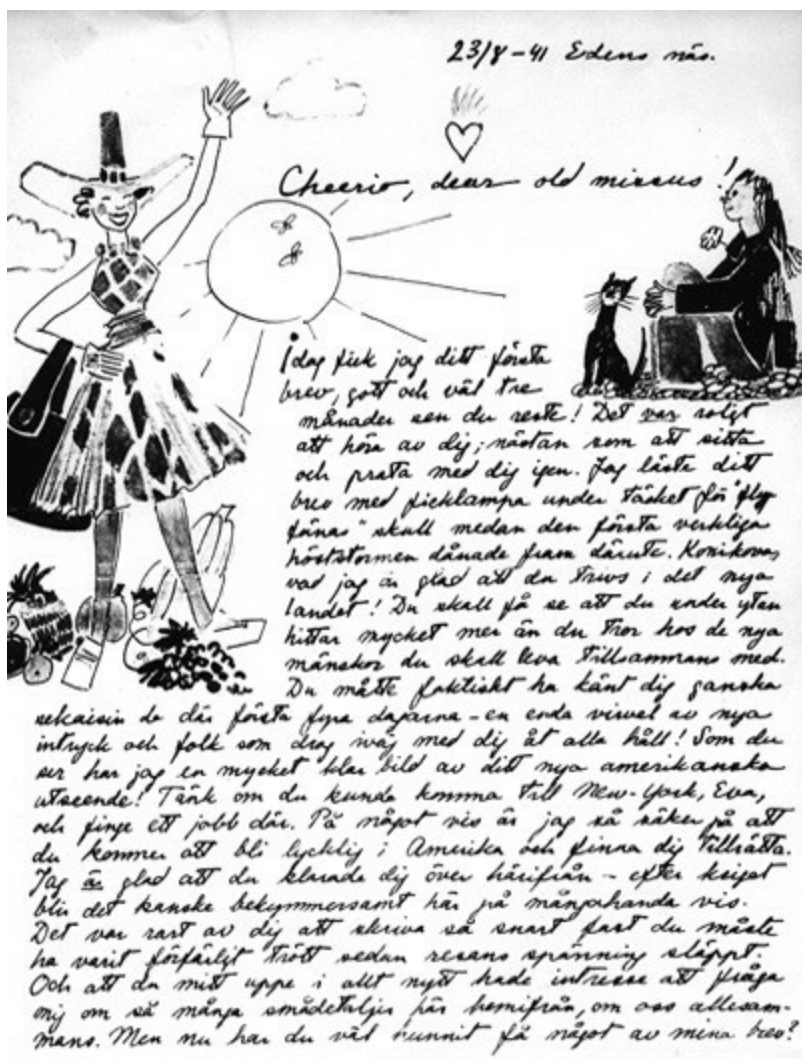 23/8-41 Edens näs.
Cheerio, dear old missus!
Idag fick jag ditt första
brev, gott och väl tre
månader sen du reste! Det var roligt
att höra av dig; nästan som att sitta
och prata med dig igen. Jag läste ditt
brev med ficklampa under täcket för "flyg
fänas" skull medan den första verkliga
höststormen dånade fram därute. Konikova,
vad jag är glad att du trivs i det nya
landet! Du skall få se att du under ytan
hittar mycket mer än du tror hos de nya
mänskor du skall leva tillsammans med.
Du måtte faktiskt ha känt dig ganska
sekaisin de där första fyra dagarna – en enda virvel av nya
intryck och folk som drog iväg med dig åt alla håll! Som du
ser har jag en mycket klar bild av ditt nya amerikanska
utseende! Tänk om du kunde komma till New-York, Eva,
och finge ett jobb där. På något vis är jag så säker på att
du kommer att bli lycklig i Amerika och finna dig tillrätta.
Jag är glad att du klarade dig över härifrån – efter kriget
blir det kanske bekymmersamt här på mångahanda vis.
Det var rart av dig att skriva så snart fast du måste
ha varit förfärligt trött sedan resans spänning släppt.
Och att du mitt uppe i allt nytt hade intresse att fråga
mig om så många smådetaljer här hemifrån, om oss allesam-
mans. Men nu har du väl hunnit få något av mina brev?